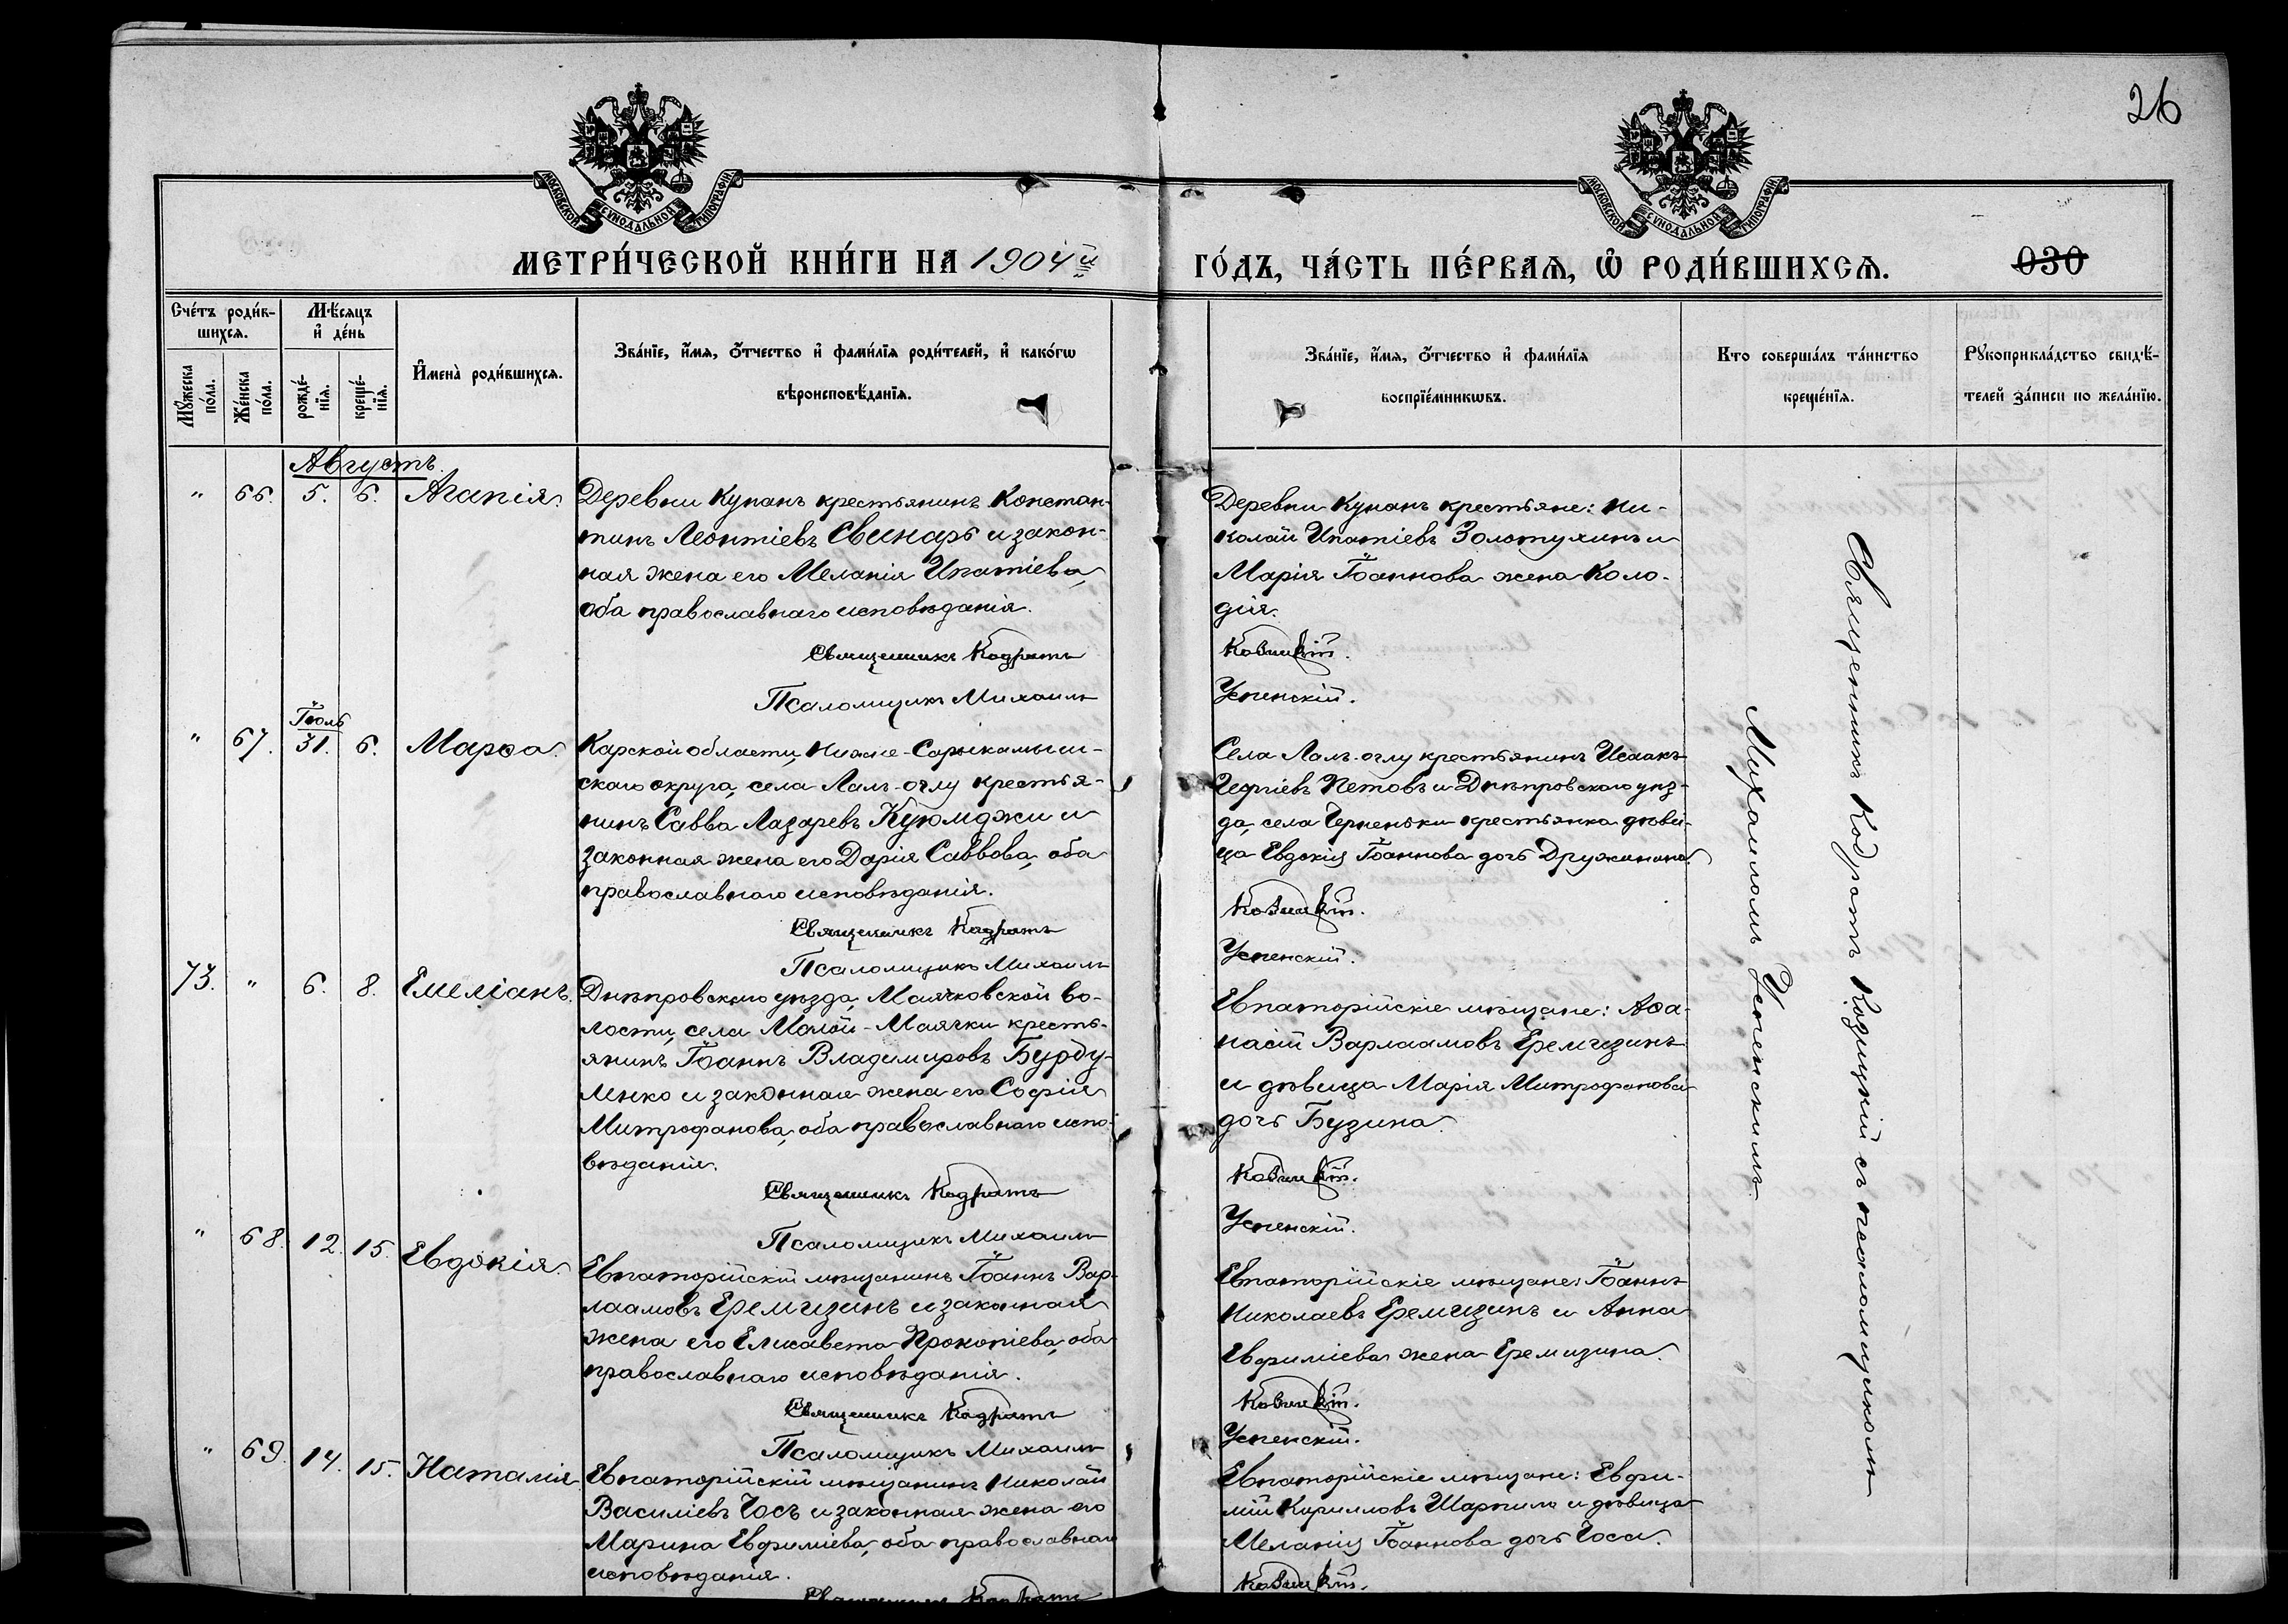 26
МОСКОВСКОЙ СѴНОДАЛЬНОЙ ТИПОГРАФІИ
МОСКОВСКОЙ СѴНОДАЛЬНОЙ ТИПОГРАФІИ
МЕТРИ́ЧЕСКОЙ КНИ́ГИ НА 1904й
ГО́ДЪ, ЧА́СТЬ ПЕ́РВАѦ, Ѡ҆ РОДИ́ВШИХСѦ.
030
Сче́тъ роди́в-
шихсѧ.
Мѣ́сѧцъ
и҆ де́нь
Мꙋ́жеска
по́ла.
Же́нска
по́ла.
рожде́-
нїѧ.
креще́-
нїѧ.
И҆мена̀ роди́вшихсѧ.
Зва́нїе, и҆́мѧ, ѻ҆́тчество и҆ фами́лїѧ роди́телей, и҆ како́гѡ
вѣроисповѣ́данїѧ.
Зва́нїе, и҆́мѧ, ѻ҆́тчество и҆ фами́лїѧ
воспрїе́мникѡвъ.
Кто соверша́лъ та́инство
креще́нїѧ.
Рꙋкоприкла́дство свидѣ́-
телей за́писи по жела́нїю.
Августъ.
" 66. 5. 6. Агапія.
Деревни Кунанъ крестьянинъ Констан-
тинъ Леонтіевъ Свинарь и закон-
ная жена его Меланія Ипатіева,
оба православнаго исповѣданія.
Священникъ Кодратъ
Псаломщикъ Михаилъ
Деревни Кунанъ крестьяне: Ни-
колай Ипатіевъ Золотухинъ и
Марія Іоаннова жена Коло-
дія.
Козицкій.
Успенскій.
" 67. Іюль 31. 6. Марѳа.
Карской области, Нижне-Сарыкамыш-
скаго округа, села Лалъ-оглу крестья-
нинъ Савва Лазаревъ Куюмджи и
законная жена его Дарія Саввова, оба
православнаго исповѣданія.
Священникъ Кодратъ
Псаломщикъ Михаилъ
Села Лалъ-оглу крестьянинъ Исаакъ
Георгіевъ Петовъ и Днѣпровскаго уѣз-
да, села Черненьки крестьянка дѣви-
ца Евдокія Іоаннова дочь Дружинина.
Козицкій.
Успенскій.
73. " 6. 8. Емеліанъ.
Днѣпровскаго уѣзда, Маячковской во-
лости, села Малой-Маячки кресть-
янинъ Іоаннъ Владимировъ Бурду-
ленко и законная жена его Софія
Митрофанова, оба православнаго испо-
вѣданія.
Священникъ Кодратъ
Псаломщикъ Михаилъ
Евпаторійскіе мѣщане: Аѳа-
насій Варлаамовъ Еремизинъ
и дѣвица Марія Митрофанова
дочь Бузина.
Козицкій.
Успенскій.
" 68. 12. 15. Евдокія.
Евпаторійскій мѣщанинъ Іоаннъ Вар-
лаамовъ Еремизинъ и законная
жена его Елисавета Прокопіева, оба
православнаго исповѣданія.
Священникъ Кодратъ
Псаломщикъ Михаилъ
Евпаторійскіе мѣщане: Іоаннъ
Николаевъ Еремизинъ и Анна
Евфиміева жена Еремизина.
Козицкій.
Успенскій.
" 69. 14. 15. Наталія
Евпаторійскій мѣщанинъ Николай
Василіевъ Чосъ и законная жена его
Марина Евфиміева, оба православнаго
исповѣданія.
Священникъ Кодратъ
Евпаторійскіе мѣщане: Евфи-
мій Кирилловъ Шарпило и дѣвица
Меланія Іоаннова дочь Чоса.
Козицкій.
Священникъ Кодратъ Козицкій съ псаломщикомъ
Михаиломъ Успенскимъ.